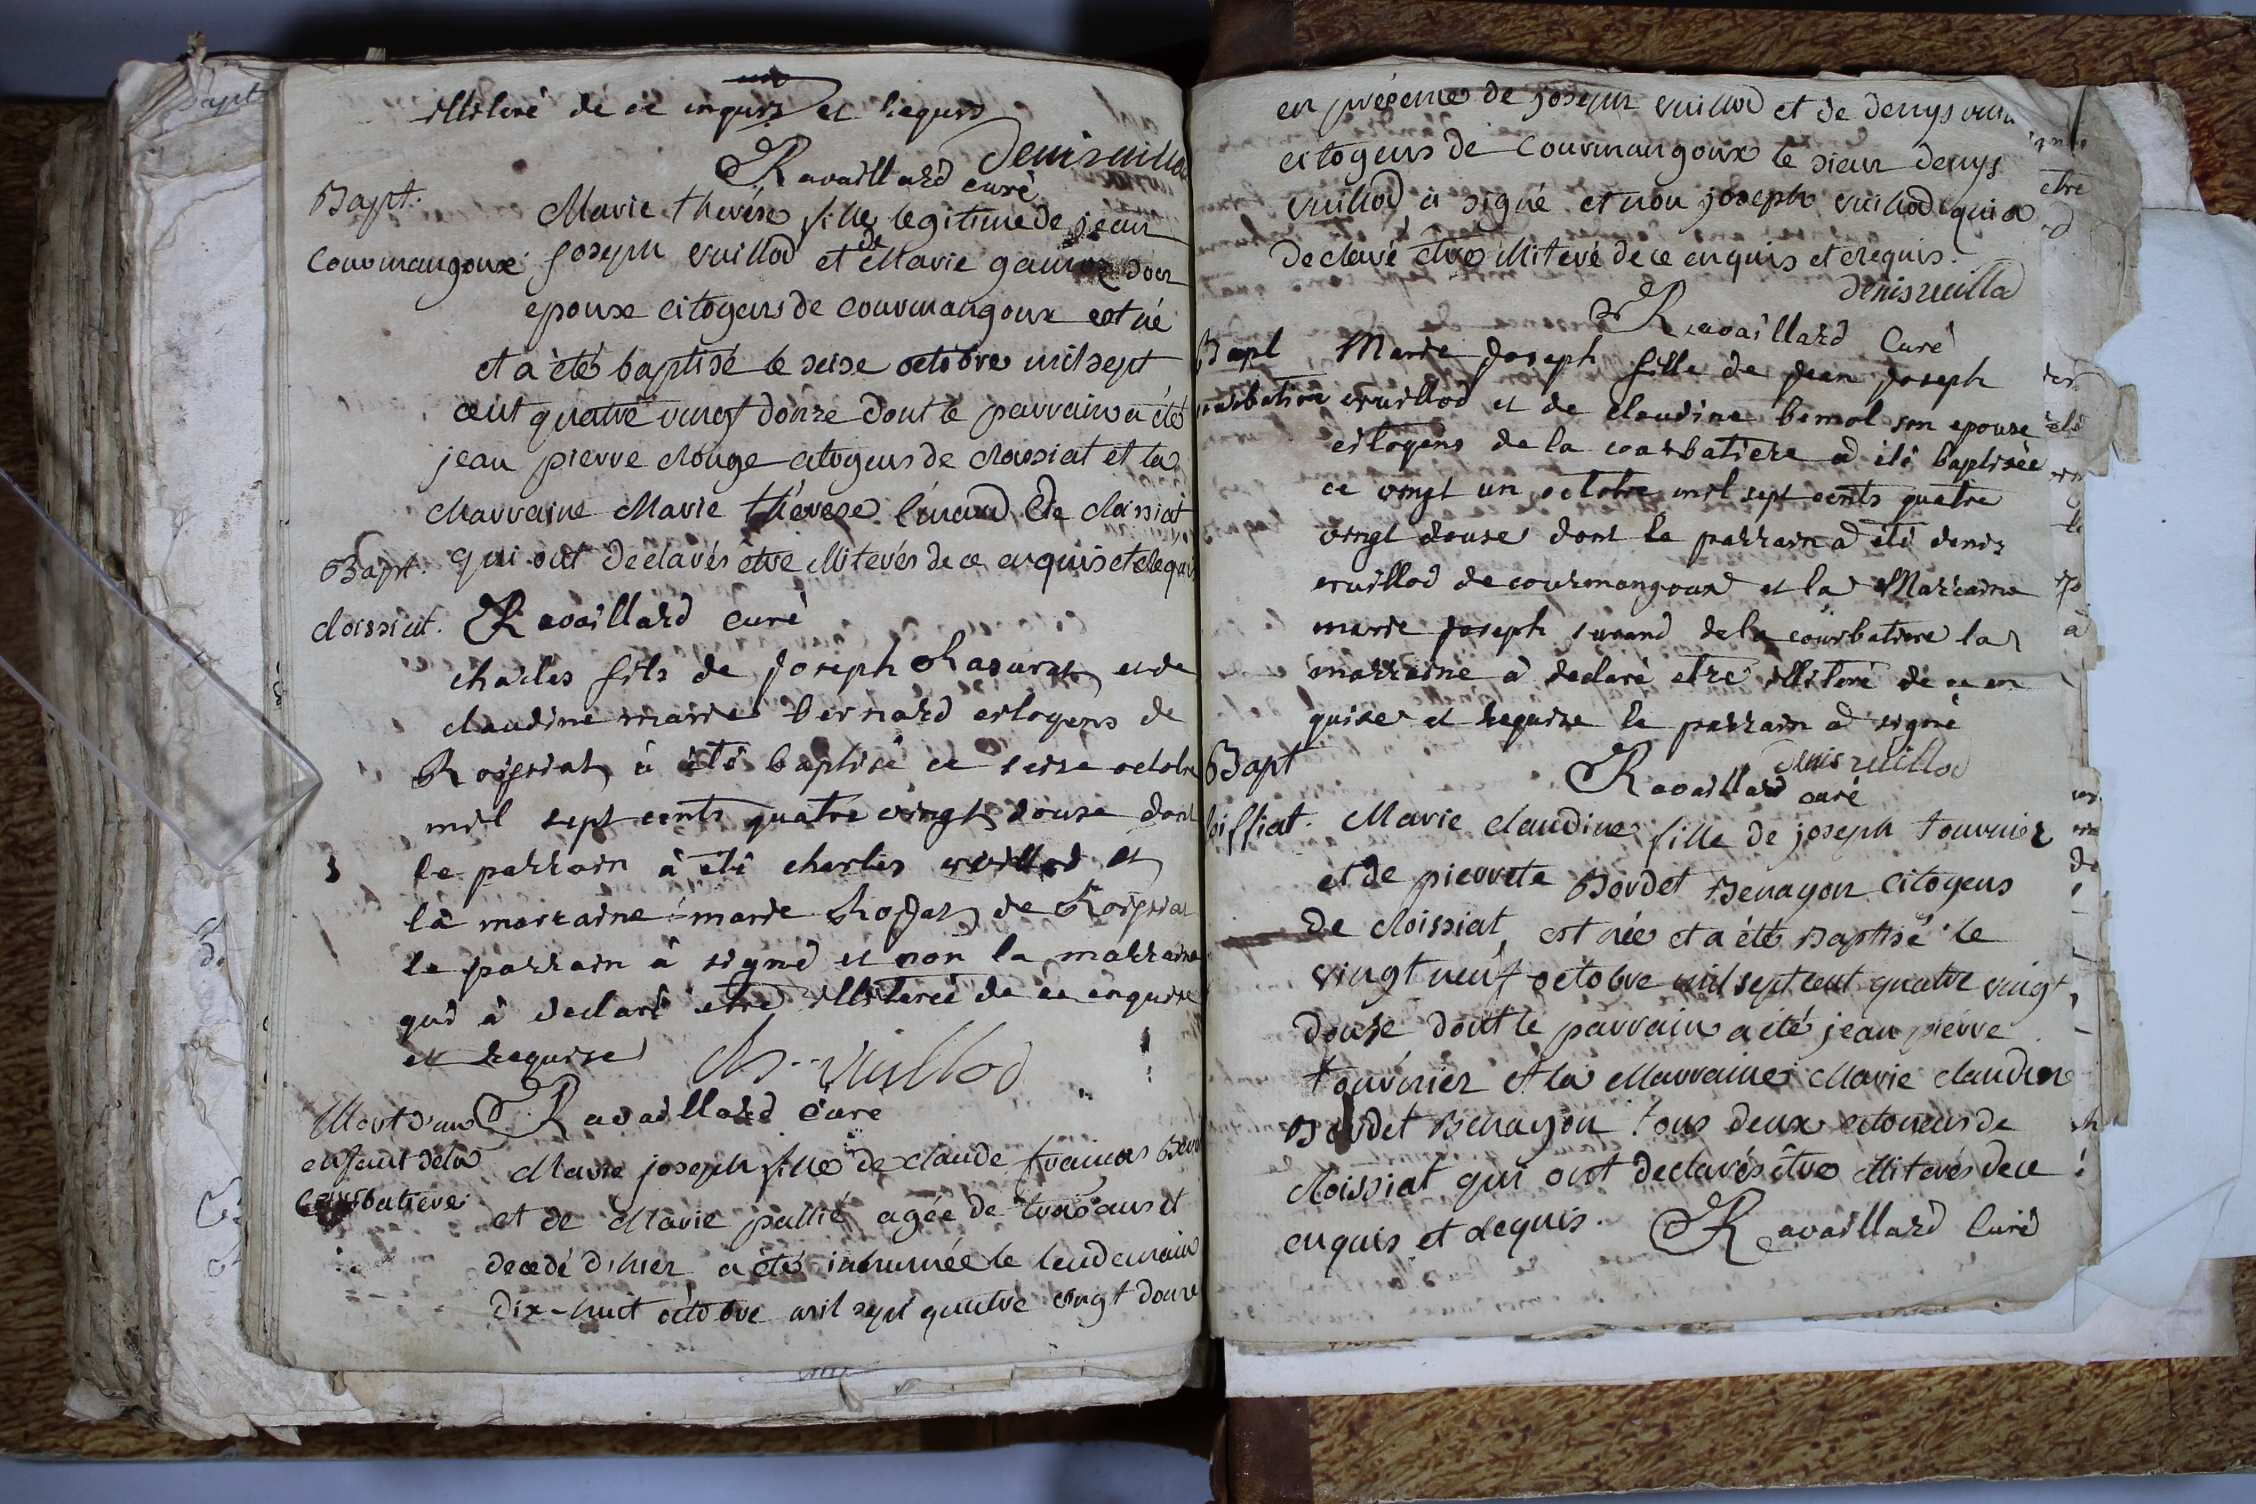 illiteré de ce enquis et requis
denis vuillod
Ravaillard curé
Bapt.
Courmangoux
Marie therèse fille legitime de jean
joseph vuillod et de Marie son
epouse citoyens de courmangoux est né
et a été baptisé le seise octobre mil sept
cent quatre vingt douze dont le parrain a été
jean pierre citoyens de cloissiat et la
Marraine Marie thérèse de cloissiat
Bapt.
cloissiat.
qui ont declarés être illiterés de ce enquis et requis
Ravaillard curé
charles fils de joseph et de
claudine marie bernard citoyens de
Roissiat à été baptisé ce seise octobre
mil sept cents quatre vingt douse dont
le parrain à été charles vuillod et
la marraine marie de Roissiat
le parrain à signé et non la marraine
qui à declaré etre illiterée de ce enquise
et requise
chs. vuillod
Ravaillard curé
Mort d'un
enfant de la
Courbatiere
Marie joseph fille de claude françois
et de Marie pallié agée de trois ans et
decedé d'hier a été inhumée le lendemain
dix-huit octobre mil sept quatre vingt douze
en présence de joseph vuillod et de denys
citoyens de Courmangoux le sieur denys
vuillod a signé et non joseph vuillod qui a
declaré être illiteré de ce enquis et requis.
denis vuillod
Ravaillard Curé
Bapt
Marie joseph fille de jean joseph
vuillod et de claudine bemol son epouse
citoyens de la courbatiere a été baptisée
ce vingt un octobre mil sept cents quatre
vingt douse dont le parrain a été denis
vuillod de courmangoux et la Marraine
marie joseph de la courbatiere la
marraine à declaré etre illiteré de ce en
quise et requise le parrain a signé
denis vuillod
Bapt
Ravaillard curé
Marie claudine fille de joseph tournier
et de pierrete Bordet Benayon Citoyens
de cloissiat est née et a été Baptisé le
vingt neuf octobre mil sept cent quatre vingt
douse dont le parrain a été jean pierre
tournier et la Marraine Marie claudine
Bordet Benayon tous deux citoyens de
cloissiat qui ont declarés être illiterés de ce
enquis et requis. Ravaillard Curé